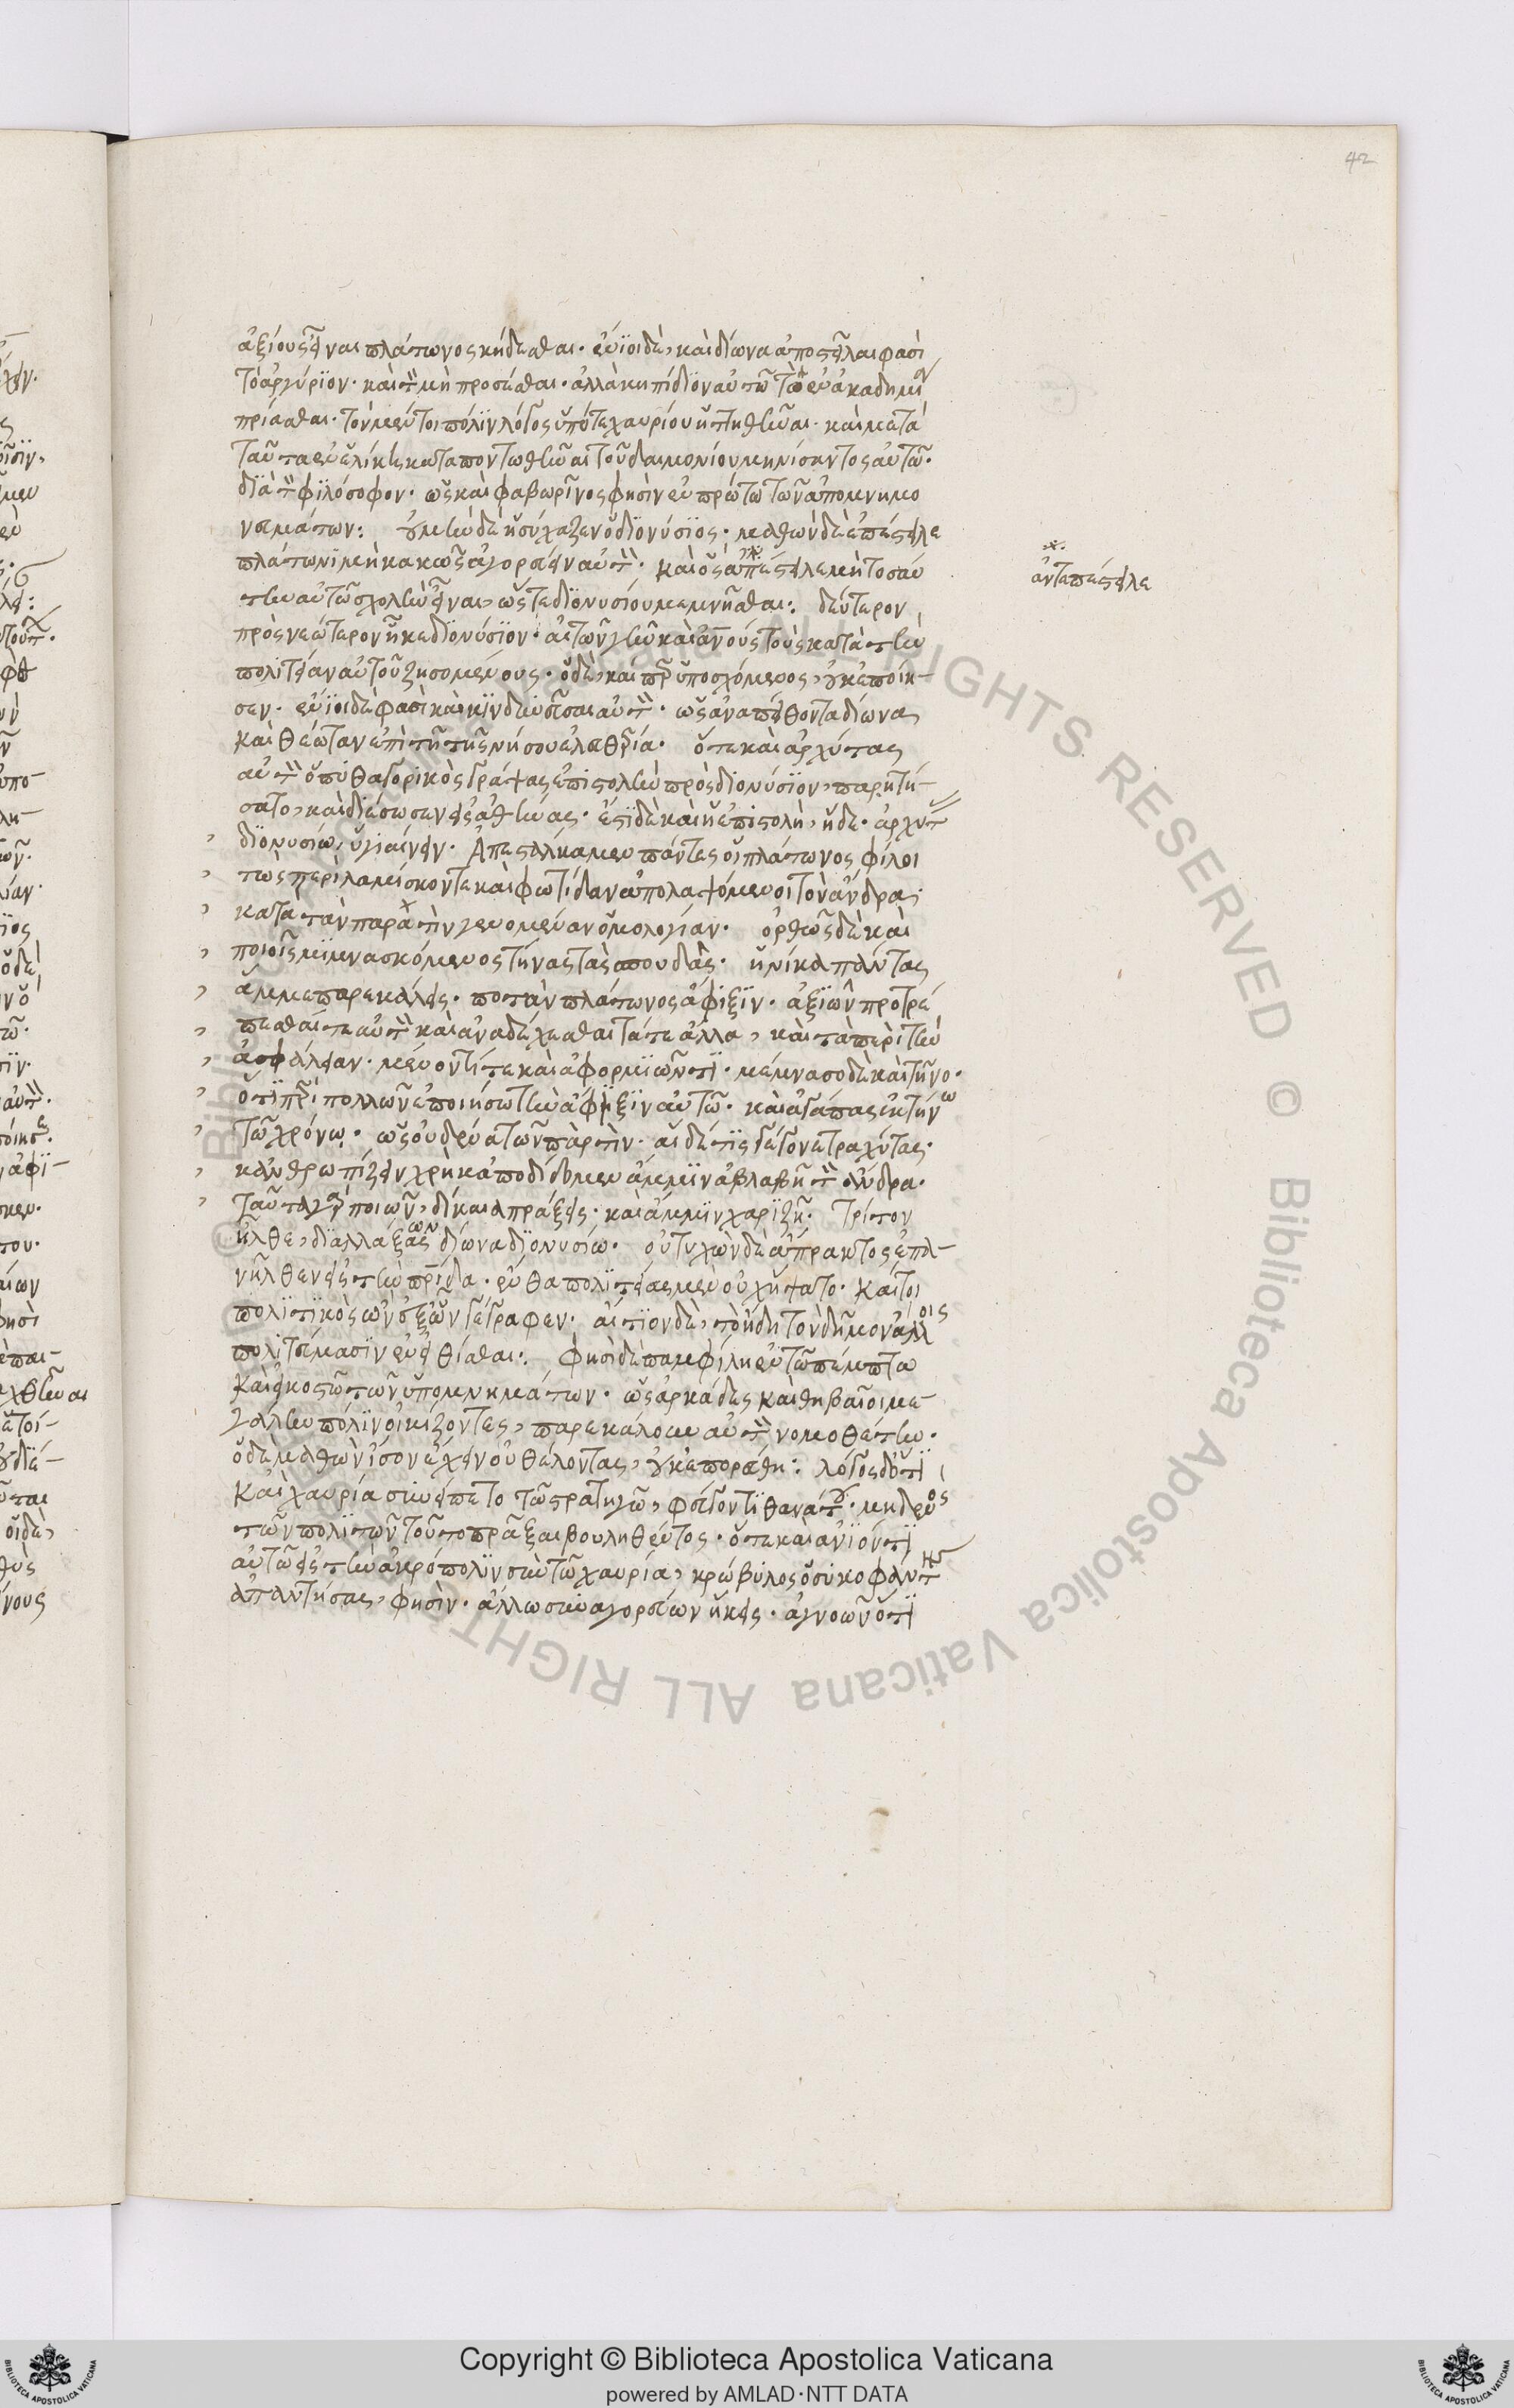 42
ἀξίους εἶναι πλάτωνος κήδεσθαι. ἔνϊοι δὲ, καὶ δίωνα ἀποστεῖλαι φασὶ
τὸ ἀργύριον. καὶ τὸν μὴ προσέσθαι. ἀλλὰ κηπίδιον αὐτῶ τὸ ἐν ἀκαδημία
πρίασθαι. τὸν μέντοι πόλϊν λόγος ὑπό τε χαβρίου ἡττηθῆναι. καὶ μετὰ
ταῦτα ἐν ἑλίκη καταποντωθῆναι τοῦ δαιμονίου μηνίσαντος αὐτῶ.
διὰ τὸν φϊλόσοφον. ὡς καὶ φαβωρῖνος φησὶν ἐν πρώτω τῶν ἀπομνημο
νευμάτων: οὐ μὴν δὲ ἡσύχαζεν ὁ διονύσϊος. μαθὼν δὲ ἐπέστειλε
πλάτωνϊ μὴ κακῶς ἀγορεύειν αὐτόν. καὶ ὃς ἀπέστειλε μὴ τοσαύ
την αὐτῶ σχολὴν εἶναι, ὥστε διονυσίου μεμνῆσθαι: δεύτερον
πρὸς νεώτερον ἧκε διονύσϊον. αἰτῶν γῆν καὶ ἀνους τοὺς κατὰ τὴν
πολιτείαν αὐτοῦ ζησομένους. ὁ δὲ, καίπερ ὑποσχόμενος, οὐκ ἐποίη-
σεν. ἔνϊοι δέ φασὶ καὶ κϊνδυνεῦσαι αὐτόν. ὡς ἀναπείθοντα δίωνα
καὶ θεώταν ἐπὶ τῆ τῆς νήσου ἐλευθερία. ὅτε καὶ ἀρχύτας
αὐτὸν ὁ πυθαγορικὸς γράψας ἐπιστολὴν πρὸς διονύσϊον, παρητή-
σατο, καὶ διέσωσεν εἰς ἀθήνας. ἔστϊ δὲ καὶ ἡ ἐπιστολὴ, ἥδε. ἀρχύτας
διονυσίω, ὑγιαίνειν. Ἀπεστάλκαμεν πάντες οἱ πλάτωνος φίλοι
τὼς περὶ λαμίσκον τε καὶ φωτίδαν ἀπολαψόμενοι τὸν ἄνδρα.
κατὰ τὰν παρὰ τὶν γενομέναν ὁμολογίαν. ὀρθῶς δὲ καὶ
ποιοῖς μϊμνασκόμενος τήνας τὰς σπουδὰς. ἡνίκα πάντας
ἄμμε παρεκάλεις. ποτὰν πλάτωνος ἄφιξϊν. ἀξϊῶν προτρέ
πεσθαί τε αὐτὸν καὶ ἀναδέχεσθαι τά τε ἄλλα, καὶ τὰ περὶ τὴν
ἀσφάλειαν. μένοντί τε καὶ ἀφορμϊῶντϊ. μέμνασο δὲ καὶ τῆνο.
ὅτϊ περὶ πολλῶν ἐποιήσω τὴν ἄφηξϊν αὐτῶ. καὶ ἀγάπας ἐκ τήνω
τῶ χρόνω. ὡς οὐδένα τῶν πὰρ τὶν. αἰ δέ τϊς γέγονε τραχύτας.
κἀνθρωπίζειν χρὴ κἀποδιδόμεν ἄμμϊν ἀβλαβῆ τὸν ἄνδρα.
ταῦτα γὰρ ποιῶν, δίκαια πράξεις. καὶ ἄμμϊν χαρϊζῆ. τρίτον
ἦλθε, διαλλάξων δίωνα διονυσίω. οὐ τυχὼν δὲ ἄπρακτος ἐπα-
νῆλθεν εἰς τὴν πρίδα. ἔνθα πολϊτείας μὲν οὐχ ἥψατο. καίτοι
πολϊτϊκὸς ὢν ἐξ ὧν γέγραφεν. αἴτϊον δὲ, τὸ ἤδη τὸν δῆμον ἄλλοις
πολϊτεύμασϊν ἐνειθίσθαι: φησὶ δὲ παμφίλη ἐν τῶ πέμπτω
καὶ εἰκοστῶ τῶν ὑπομνημάτων. ὡς ἀρκάδες καὶ θηβαῖοι με-
γάλην πόλϊν οἰκίζοντες, παρεκάλουν αὐτὸν νομοθέτην.
ὁ δὲ μαθὼν ἴσον ἔχειν οὐ θέλοντας, οὐκ ἐπορεύθη: λόγος δ' ὅτϊ
καὶ χαβρία συνείπετο τῶ στρατηγῶ, φεύγοντϊ θανάτου. μηδενὸς
τῶν πολϊτῶν τοῦτο πρᾶξαι βουληθέντος. ὅτε καὶ ἀνϊόντϊ
αὐτῶ εἰς τὴν ἀκρόπολϊν σὺν τῶ χαβρία, κρώβυλος ὁ συκοφάντης
ἀπαντήσας, φησὶν. ἄλλω συναγορεύων ἥκεις. ἀγνοῶν ὅτϊ
ἀντεπέστειλε